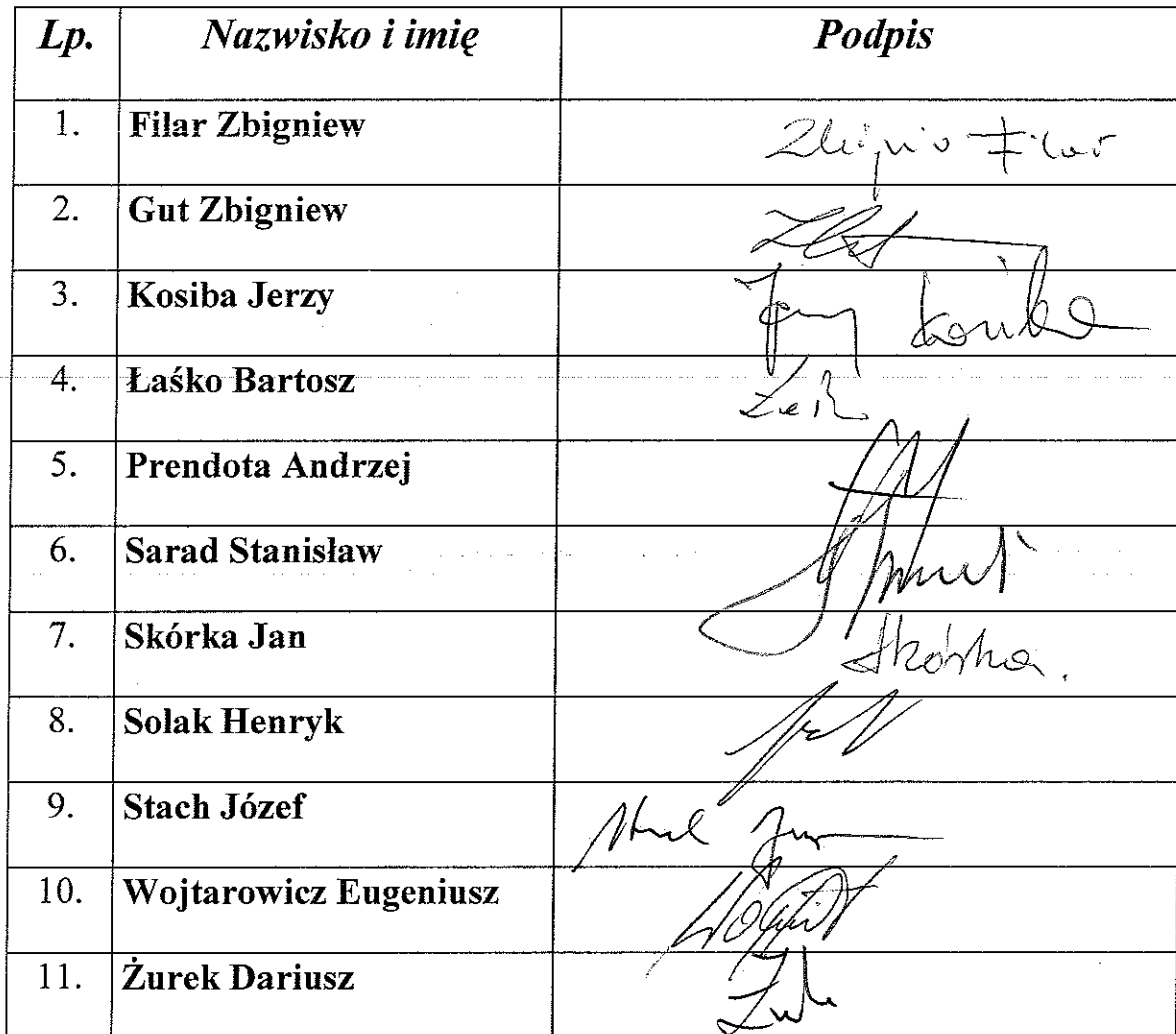 Lp. Nazwisko i imię Podpis
1. Filar Zbigniew Zbigniew Filar
2. Gut Zbigniew
3. Kosiba Jerzy Jerzy Kosiba
4. Łaśko Bartosz
5. Prendota Andrzej
6. Sarad Stanisław
7. Skórka Jan Skórka.
8. Solak Henryk
9. Stach Józef
10. Wojtarowicz Eugeniusz
11. Żurek Dariusz